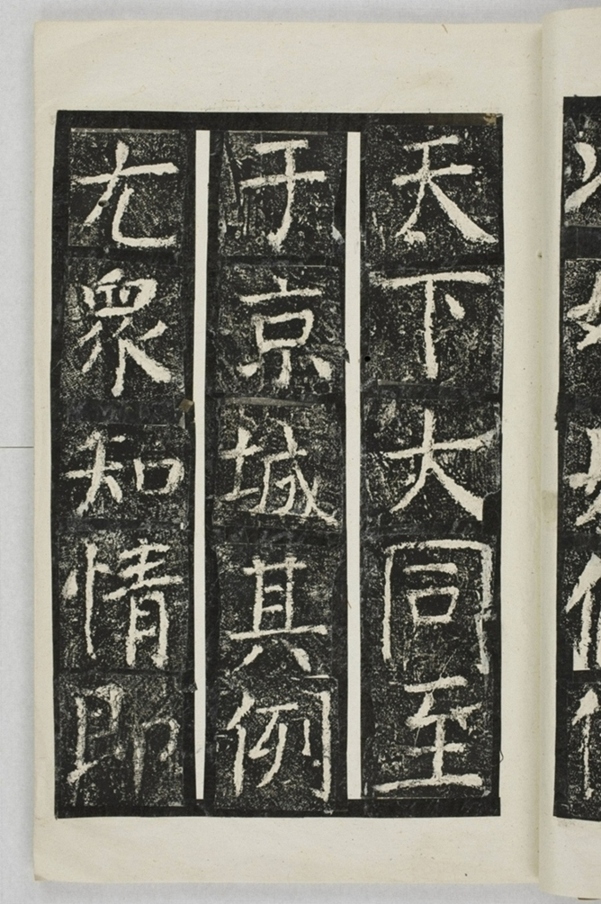 天下大同至
于京城其例
尢眾知情即